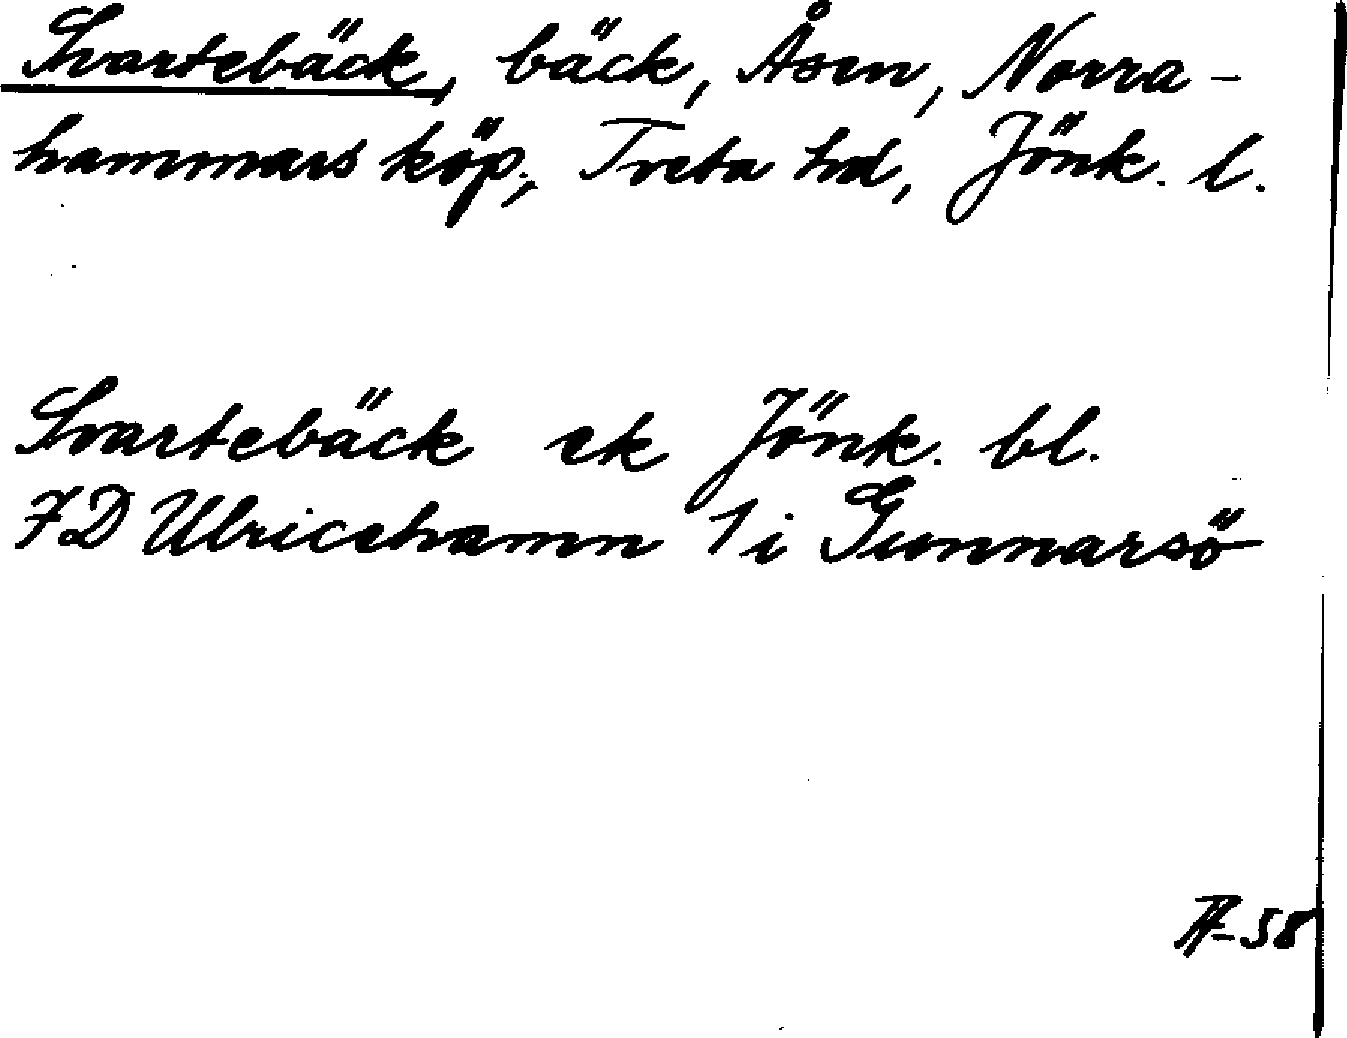 Svartebäck, bäck, Åsen, Norra-
hammars köp., Tveta hd, Jönk. l.
Svartebäck ek Jönk. bl.
7D Ulricehamn 1 i Gunnarsö
-58